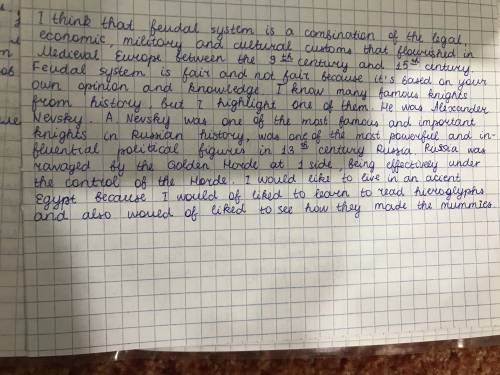 I think that feudal system is a combination of the legal,
economic, military and cultural customs that flourished in
Medieval Europe between the 9th century and 15st century.
Feudal system is fair and not fair because it's based on your
own opinion and knowledge. I know many famous knights
from history, but I highlight one of them. He was Alixander
Nevsky. A Nevsky was one of the most famous and important
knights in Russian history, was one of the most powerful and in-
fluential political figures in 13th century Russia. Russia was
ravaged by the Golden Horde at 1 side, being effectively under
the control of the Horde. I would like to live in an accent
Egypt because I would of liked to learn to read hieroglyphs
and also would of liked to see how they made the mummies.